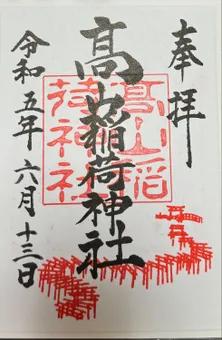 奉拝
高山稲荷神社
髙山稲荷神社
令和五年六月十三日